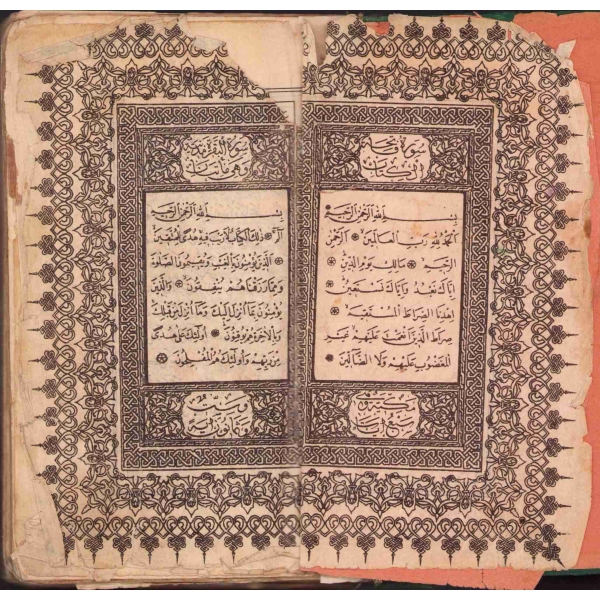 سورة فاتحة
الكتاب
بسم الله الرحمن الرحيم
الحمد لله رب العالمين ۝ الرحمن
الرحيم ۝ مالك يوم الدين ۝
اياك نعبد واياك نستعين ۝
اهدنا الصراط المستقيم ۝
صراط الذين انعمت عليهم غير
المغضوب عليهم ولا الضالين
مكية
سبع آيات
سورة البقرة مدنية
وهي مائتان
بسم الله الرحمن الرحيم
الم ۝ ذلك الكتاب لا ريب فيه هدى للمتقين
الذين يؤمنون بالغيب ويقيمون الصلاة
ومما رزقناهم ينفقون ۝ والذين
يؤمنون بما انزل اليك وما انزل من قبلك
وبالآخرة هم يوقنون ۝ اولئك على هدى
من ربهم واولئك هم المفلحون ۝
وست
وثمانون آية